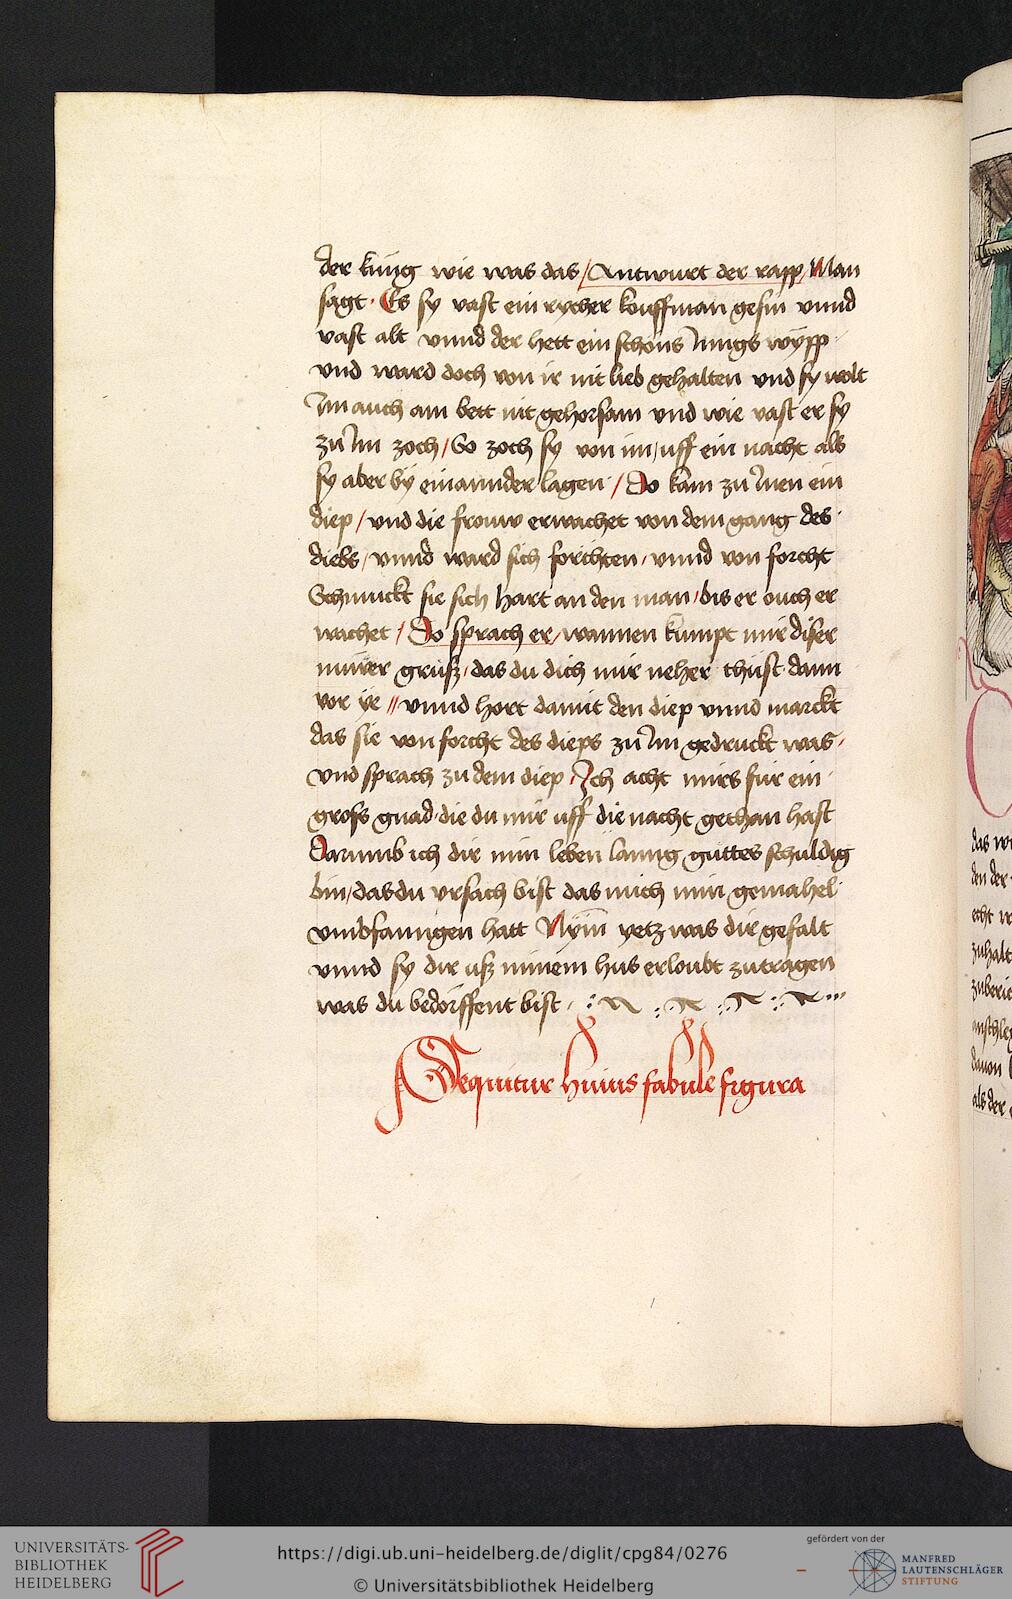 der kung wie was das / Antwurt der rapp / Man
sagt · Es sy vast ein rycher kouffman gesin vnnd
vast alt vnnd der hett ein schöns Jungs wypp
vnd ward doch von ir nit lieb gehalten vnd sy wolt
Im auch am bett nit gehorsam vnd wie vast er sy
zů Im zoch / So zoch sy von im / uff ein nacht als
sy aber by einannder lagen / Do kam zů Inen ein
diep / vnd die frouw erwachet von dem gang des
diebs / vnnd ward sich förchten / vnnd von forcht
Schmuckt sie sich hart an den man / bis er ouch er
wachet / Do sprach er / wannen kumpt mir diser
nüwer grůß / das du dich mir neher thůst dann
vor ye // vnnd hort damit den diep vnnd marckt
das sie von forcht des dieps zů Im gedruckt was /
vnd sprach zu dem diep / Ich acht mirs für ein
gross gnad / die du mir uff die nacht gethan hast
Darumb ich dir min leben lanng guttes schuldig
bin / das du vrsach bist das mich min gemahel
vmbfanngen hatt Nym yetz was dir gefalt
vnnd sy dir uß minem hus erloubt zutragen
was du bedörffent bist
Sequitur huius fabule figura
das
den der
echt
zuhalt
davon
als der
UNIVERSITÄTS-
BIBLIOTHEK
HEIDELBERG
https://digi.ub.uni-heidelberg.de/diglit/cpg84/0276
© Universitätsbibliothek Heidelberg
gefördert von der
MANFRED
LAUTENSCHLÄGER
STIFTUNG